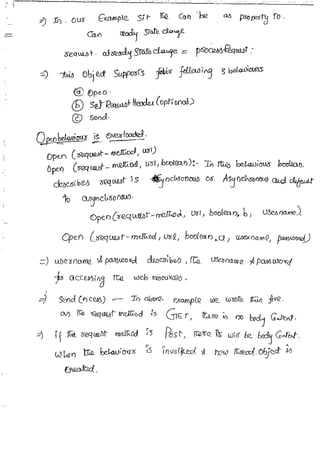 =) In our Example sir the Can be as property to.
Can ready State change
request. already State change = process Request :
=) this Object Supports following 3 behaviours
(a) Open.
(b) Set Request Header (optional)
(c) Send.
Open behaviour is overloaded.
Open (request-method, url)
Open (request-method, url, boolean):- In this behaviour boolean.
describes request is Synchronous or. Asynchronous and default
to asynchronous.
Open (request-method, url, boolean, b, username)
Open (request-method, url, boolean, a, username, password)
=) username & password describes, the username & password
for accessing the web resources.
=) Send (ncess) — In above. example we wrote this fire.
as the request method is GET, there is no body Content.
=) if the request method is Post, there is will be body Content.
when the behaviour is invoked a new thread. Object is
Created.